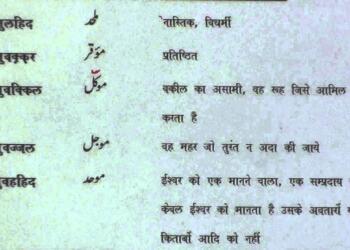 मुलहिद ملحد नास्तिक, विधर्मी
मुवक़्क़र مؤقر प्रतिष्ठित
मुवक्किल موکّل वकील का असामी, वह रूह जिसे आमिल
करता है
मुवज्जल موجل वह महर जो तुरंत न अदा की जाये
मुवहहिद موحد ईश्वर को एक मानने वाला, एक सम्प्रदाय
केवल ईश्वर को मानता है उसके अवतारों
किताबों आदि को नहीं